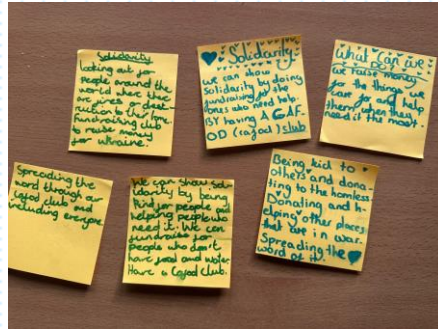 Solidarity
Looking out for
people around the
world where there
are fires or dest-
ruction to their home.
Fundraising club
to raise money
for ukraine.
Solidarity
we can show
solidarity by doing
fundraising for the
ones who need help.
BY having A CAF-
OD (cafod) club
What can we
do?
we raise money
for the things we
care for and help
them when they
need it the most.
Spreading the
word through our
Cafod club and
including everyone
We can show soli-
darity by being
kind for people and
helping people who
need it. We can
fundraise for
people who don't
have food and water
Have a Cafod club.
Being kid to
others and dona-
ting to the homless.
Donating and h-
elping other places
that are in war.
Spreading the
word of it.